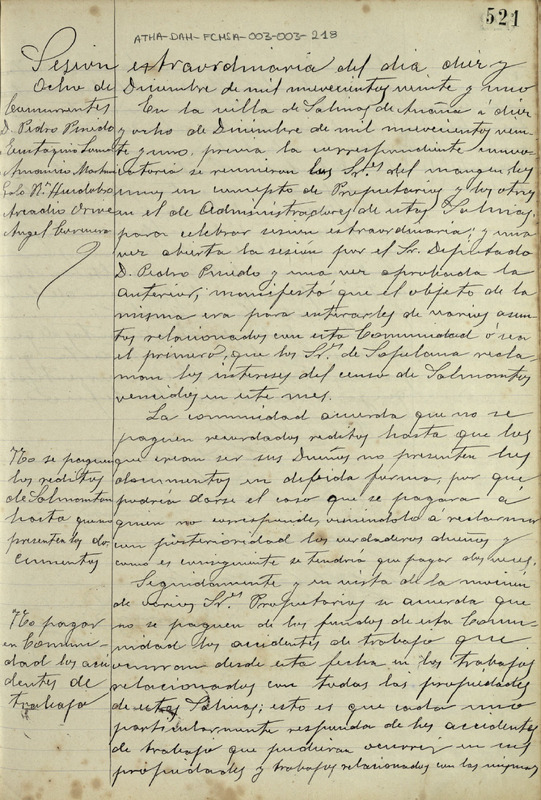 521
ATHA-DAH-FCHSA-003-003-218
Sesion extraordinaria del dia diez y
Ocho de Diciembre de mil novecientos veinte y uno
Concurrentes
D. Pedro Pinedo
Eustaquio
Mauricio
Arcadio
Angel
En la villa de Salinas de Añana á diez
y ocho de Diciembre de mil novecientos vein-
te y uno, previa la correspondiente convo-
catoria se reunieron los Sres del margen los
unos en concepto de Propietarios y los otros
en el de Administradores de estas Salinas,
para celebrar sesion extraordinaria; y una
vez abierta la sesión por el Sr. Diputado
D. Pedro Pinedo y una vez aprobada la
anterior, manifestó que el objeto de la
misma era para enterarles de varios asun-
tos relacionados con esta Comunidad ó sea
el primero, que los Sres de recla-
man los intereses del censo de Salmantón
vencidos en este mes.
La comunidad acuerda que no se
paguen recordados reditos hasta que los
que crean ser sus Dueños no presenten los
documentos en debida forma, por que
podria darse el caso que se pagara a
quien no corresponde, viniendolo á reclamar
con posterioridad los verdaderos dueños y
como es consiguiente se tendria que pagar dos veces.
No se paguen
los reditos
de Salmanton
hasta que no
presenten los do-
cumentos
Seguidamente y en vista de la mocion
de varios Sres Propietarios se acuerda que
no se paguen de los fondos de esta Comu-
nidad los accidentes de trabajo que
ocurran desde esta fecha ni los trabajos
relacionados con todas las propiedades
de estas Salinas; esto es que cada uno
particularmente responda de los accidentes
de trabajo que pudieran ocurrir en sus
propiedades y trabajos relacionados con las mismas
No pagar
en Comuni-
dad los acci-
dentes de
trabajo